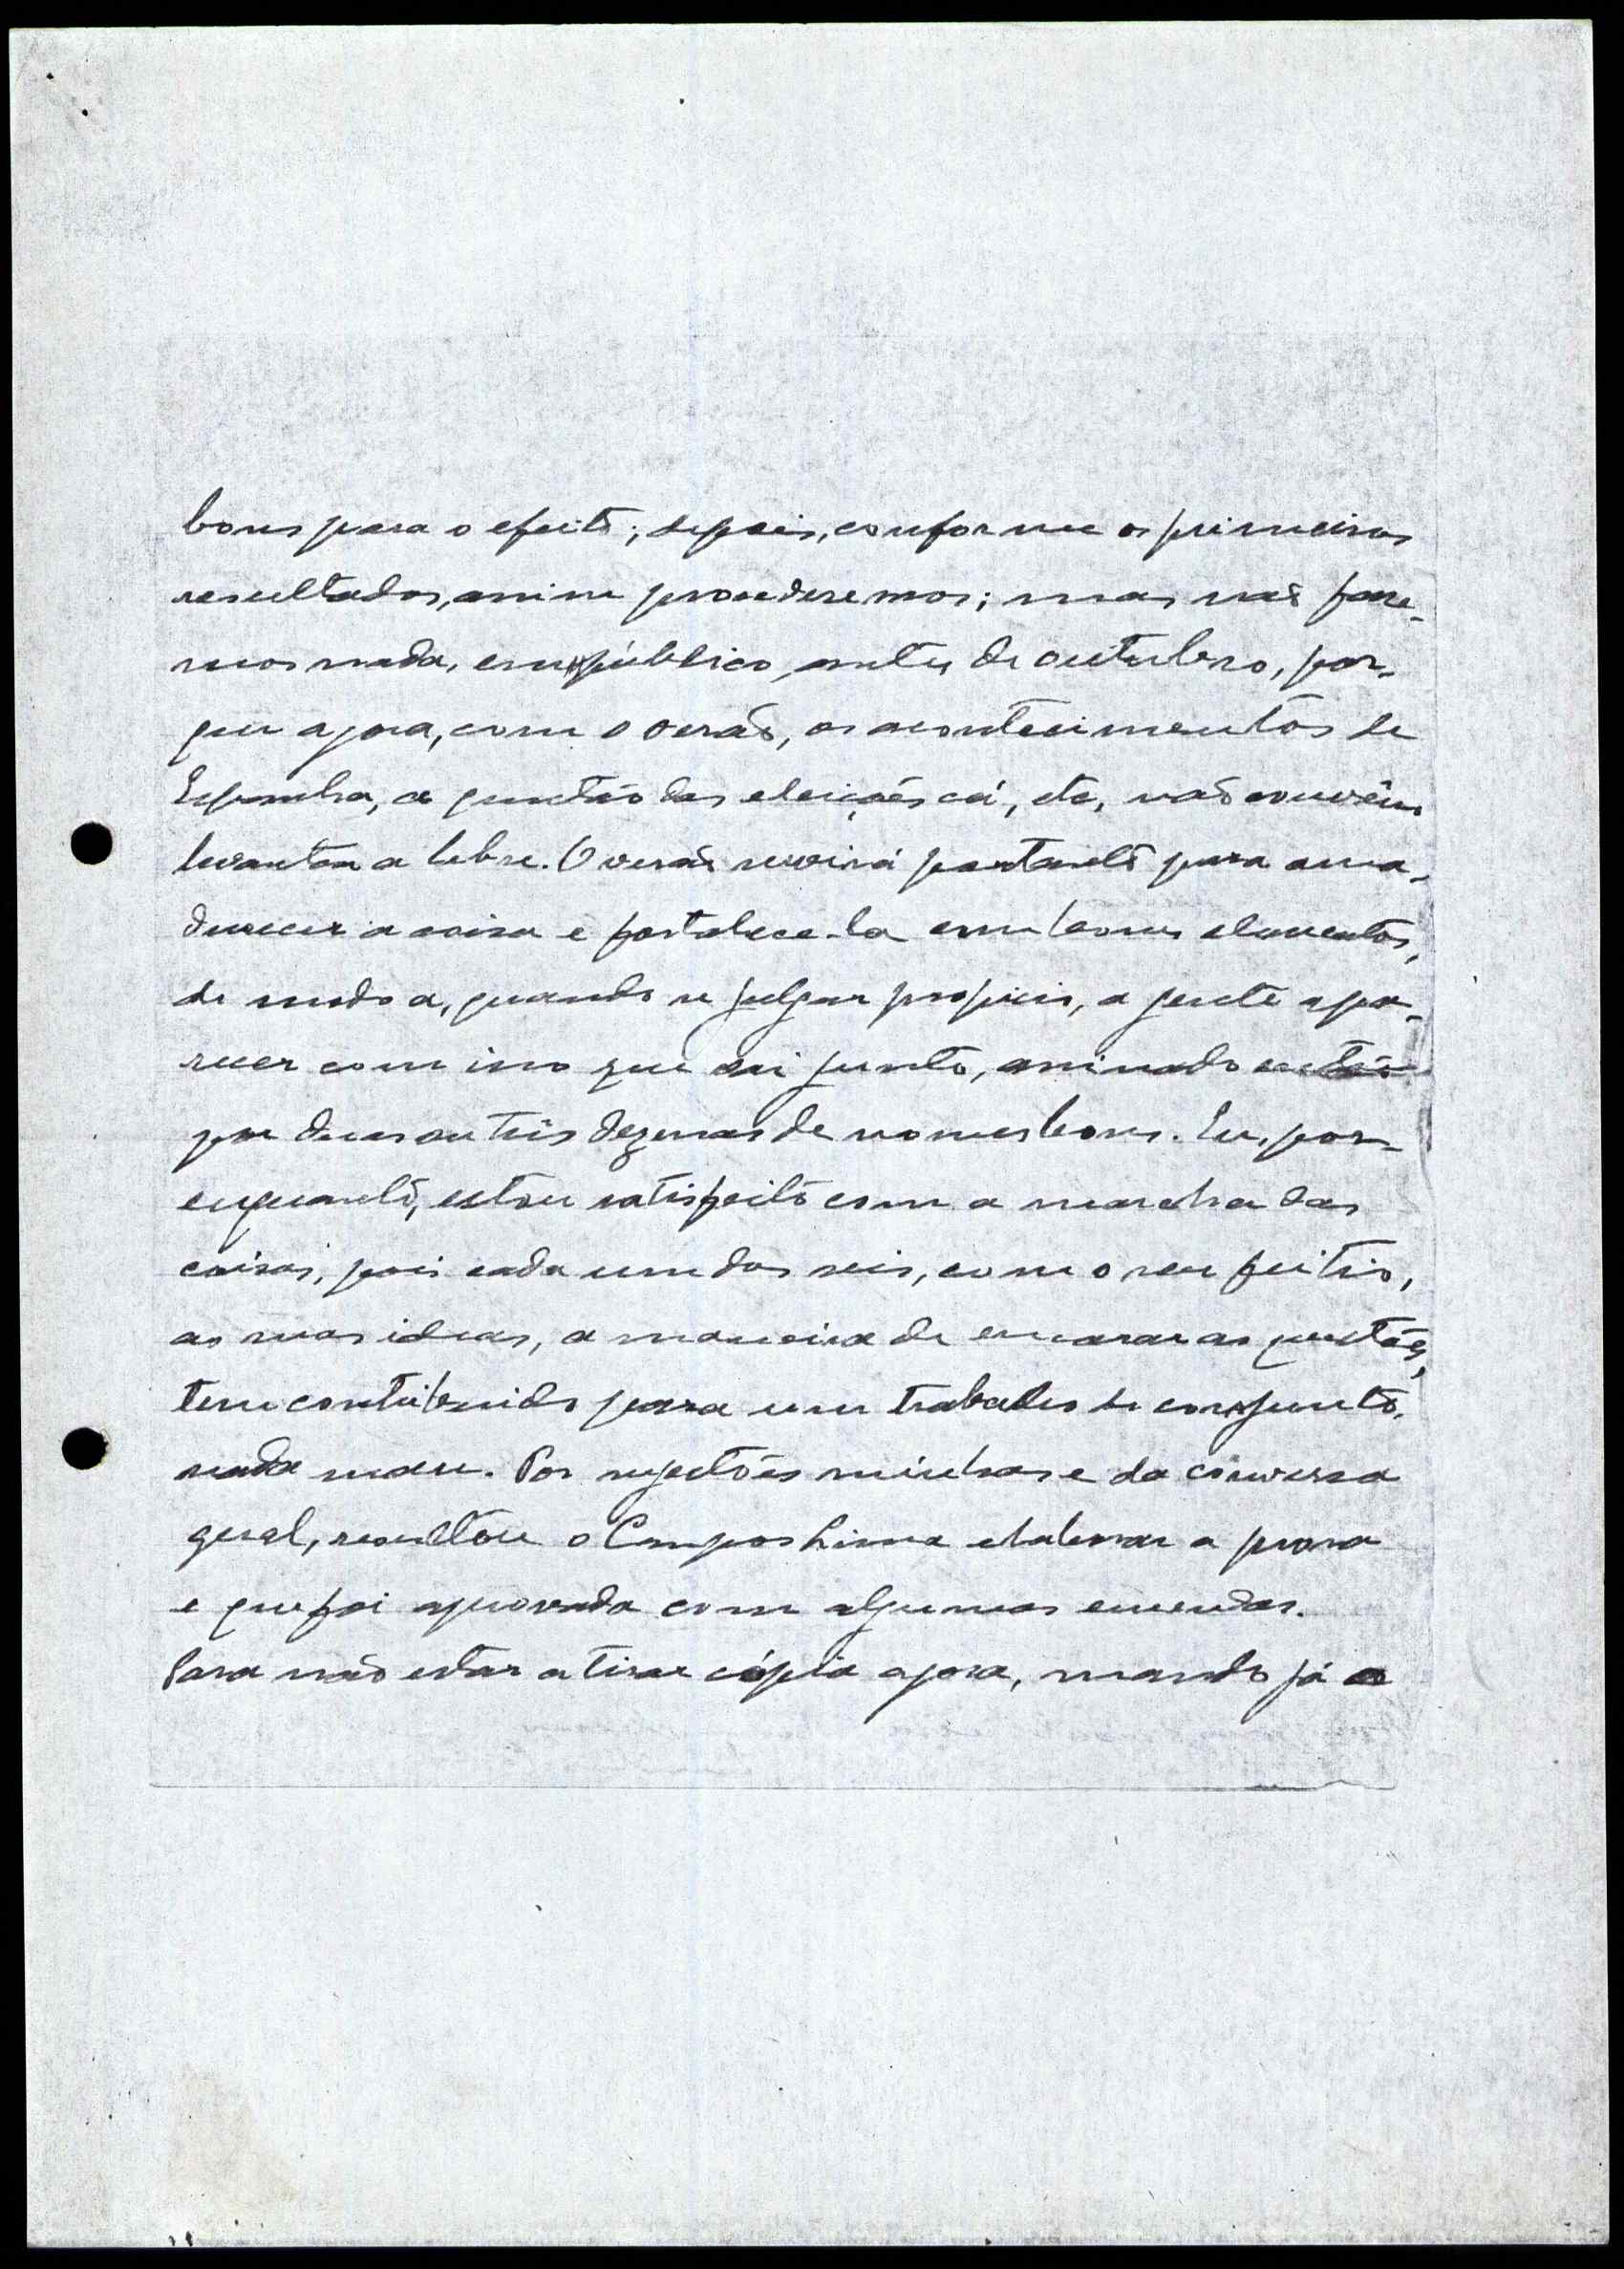 bons para o efeito; depois, conforme os primeiros
resultados, assim procederemos; mas não fare-
mos nada, em público, antes de outubro, por-
que agora, com o verão, os acontecimentos de
Espanha, a questão das eleições cá, etc, não convêm
levantar a lebre. O verão servirá portanto para ama-
durecer a coisa e fortalece-la com bons elementos,
de modo a, quando se julgar propicio, a gente apa-
recer com isso que vai junto, assinado então
por duas ou três dezenas de nomes bons. Eu, por-
enquanto, estou satisfeito com a marcha das
coisas, pois cada um dos seis, com o seu feitio,
as suas ideas, a maneira de encarar as questões,
tem contribuido para um trabalho de conjunto,
nada mau. Por sugestões minhas e da conversa
geral, resultou o Campos Lima elaborar a prosa
e que foi aprovada com algumas emendas.
Para não estar a tirar cópia agora, mando já a